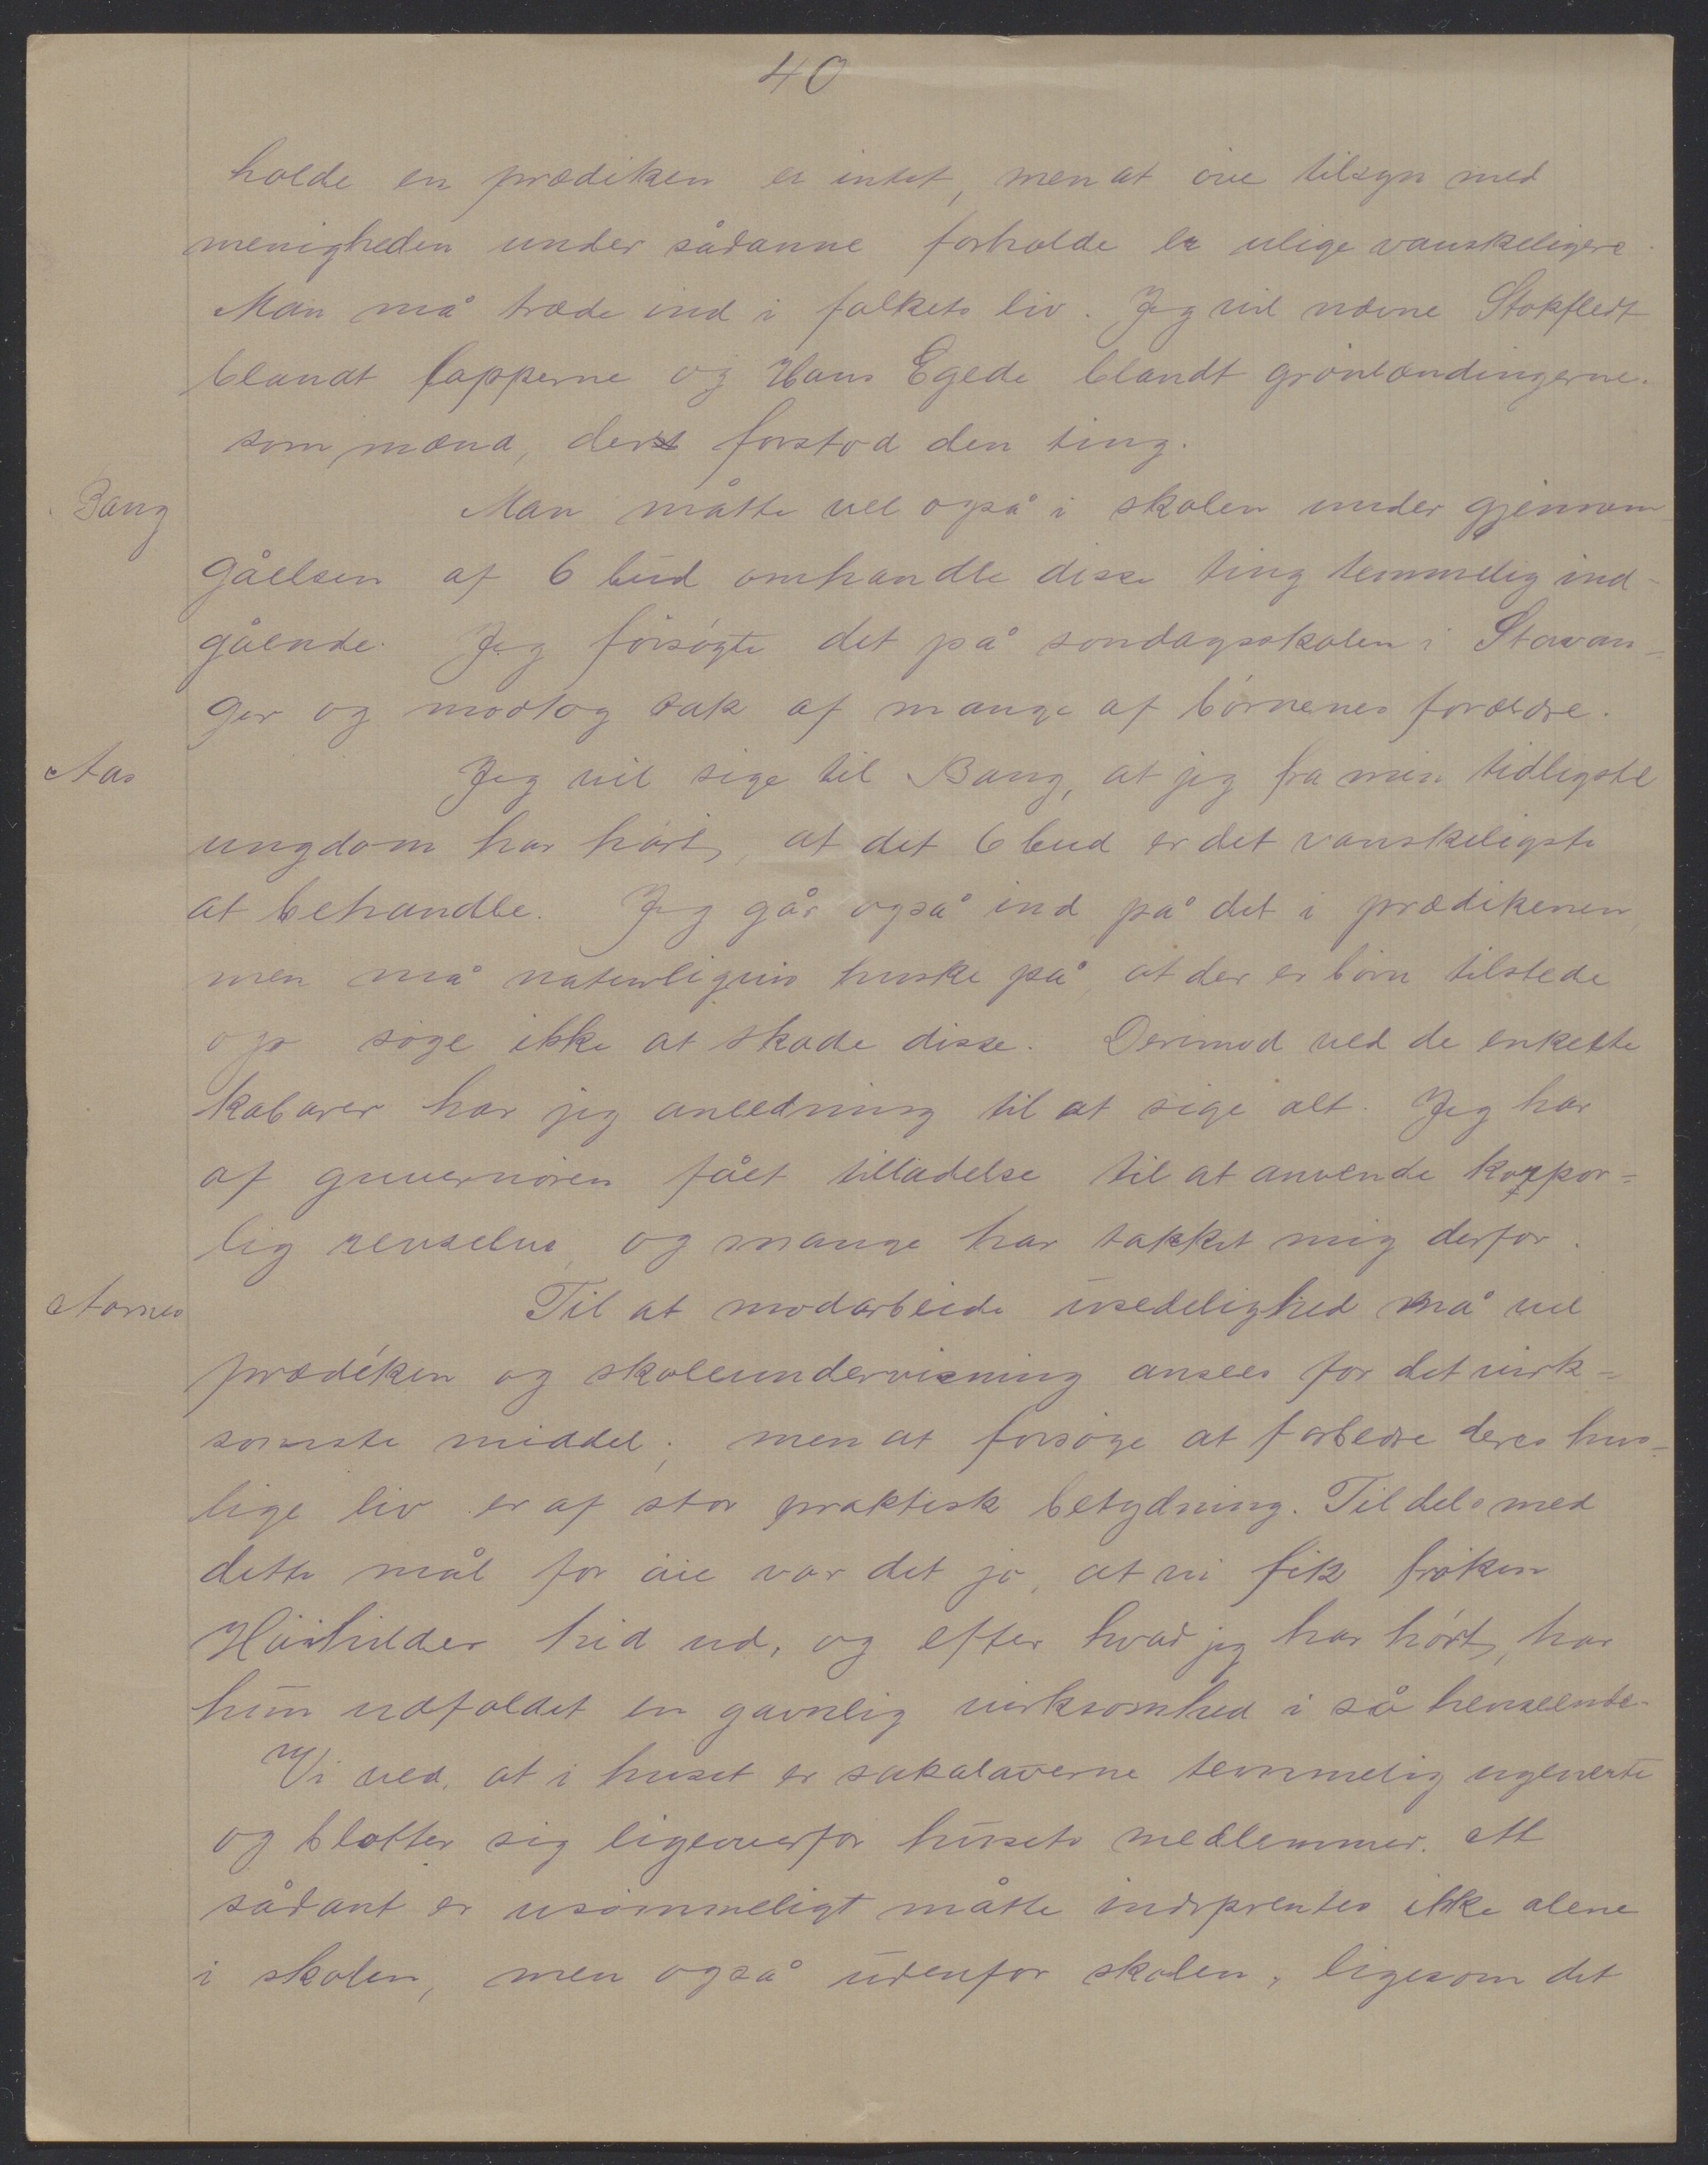 40
holde en prædiken er intet, men at øve tilsyn med
menigheden under sådanne forholde er ulige vanskeligere.
Man må træde ind i folkets liv. Jeg vil nævne Stokfledt
blandt lapperne og Hans Egede blandt grønlændingerne.
som mænd, der forstod den ting.
Bang
Man måtte vel også i skolen under gjennem
gåelsen af 6 bud omhandle disse ting temmelig ind-
gående. Jeg forsøgte det på søndagsskolen i Stavan-
ger og modtog tak af mange af børnenes forældre.
Aas
Jeg vil sige til Bang, at jeg fra min tidligste
ungdom har hørt, at det 6 bud er det vanskeligste
at behandle. Jeg går også ind på det i prædikenen,
men må naturligvis huske på, at der er børn tilstede
og søge ikke at skade disse. Derimod ved de enkelte
kabarer har jeg anledning til at sige alt. Jeg har
af guvernøren fået tilladelse til at anvende korpor=
lig revselse, og mange har takket mig derfor.
Aarnes
Til at modarbeide usedelighed må vel
prædiken og skoleundervisning ansees for det virk=
somste middel; men at forsøge at forbedre deres hus-
lige liv er af stor praktisk betydning. Tildels med
dette mål for øie var det jo, at vi fik frøken
hid ud, og efter hvad jeg har hørt, har
hun udfoldet en gavnlig virksomhed i så henseende.
Vi ved, at i huset er sakalaverne temmelig ugenerte
og blotter sig ligeoverfor husets medlemmer. At
sådant er usømmeligt måtte indprentes ikke alene
i skolen, men også udenfor skolen, ligesom det